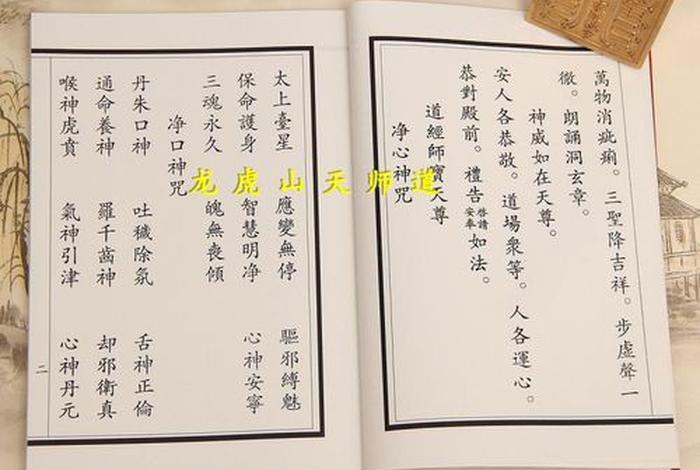 萬物消疵痾。三聖降吉祥。步虛聲一
徹。朗誦洞玄章。
神威如在天尊。
安人各恭敬。道場衆等。人各運心。
恭對殿前。禮告啓請安奉如法。
道經師寶天尊
净心神咒
太上臺星 應變無停 驅邪縛魅
保命護身 智慧明净 心神安寧
三魂永久 魄無丧傾
净口神咒
丹朱口神 吐穢除氛 舌神正倫
通命養神 羅千齒神 却邪衛真
喉神虎賁 氣神引津 心神丹元
二
龙虎山天师道